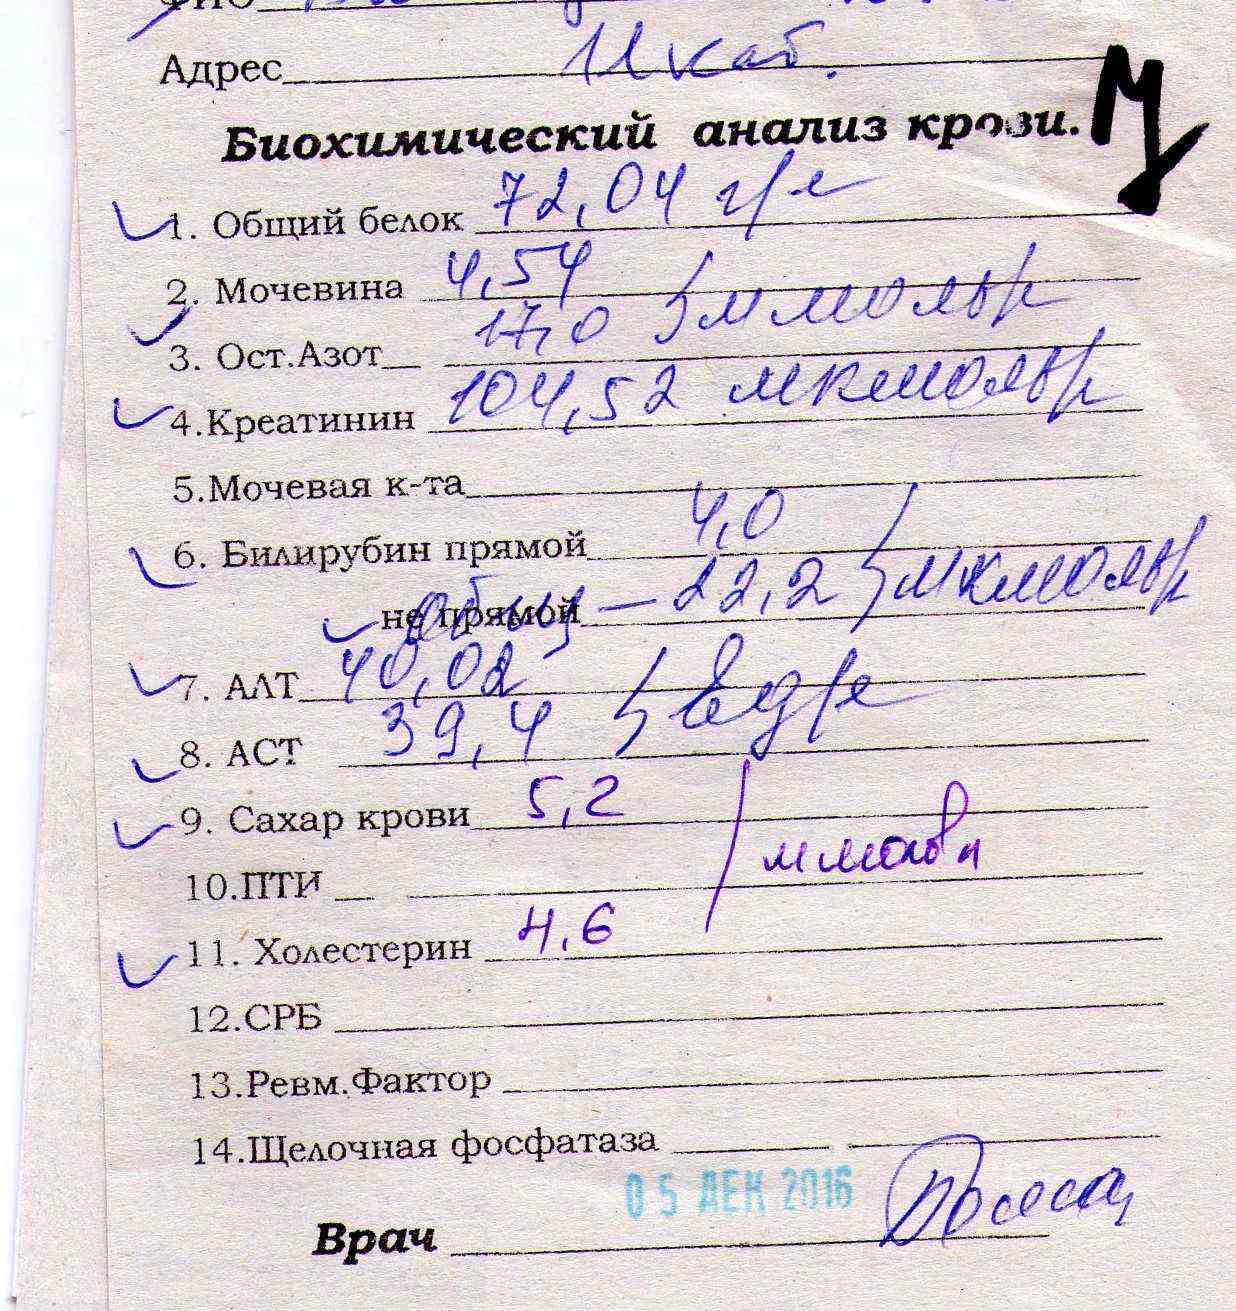 ФИО
Адрес 11 каб.
Биохимический анализ крови.
1. Общий белок 72,04 г/л
2. Мочевина 4,54
3. Ост.Азот 17,0 } ммоль/л
4.Креатинин 104,52 мкмоль/л
5.Мочевая к-та
6. Билирубин прямой 4,0
не прямой общ – 22,2 } мкмоль/л
7. АЛТ 40,02
8. АСТ 39,4 } ед/л
9. Сахар крови 5,2
ммоль/л
10.ПТИ
11. Холестерин 4,6
12.СРБ
13.Ревм.Фактор
14.Щелочная фосфатаза
05 ДЕК 2016
Врач